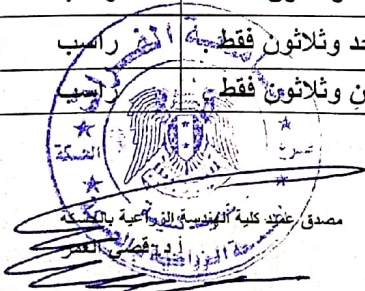 حد وثلاثون فقط راسب
ن وثلاثون فقط راسب
الحسكة
مصدق عميد كلية الهندسة الزراعية بالحسكة
أ.د. قصي العمر